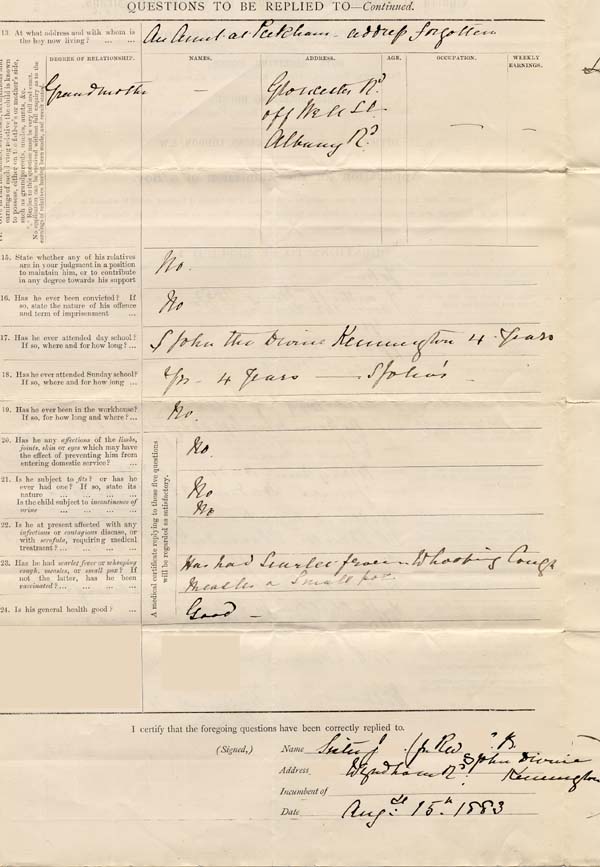 QUESTIONS TO BE REPLIED TO—Continued.
13. At what address and with whom is
the boy now living? ... ...
An Aunt at Peckham - address forgotten
DEGREE OF RELATIONSHIP. NAMES. ADDRESS. AGE. OCCUPATION. WEEKLY
EARNINGS.
earnings of each living relative the child is known
to possess, either on the father's or mother's side,
such as grandparents, uncles, aunts, &c.
Grandmother — Gloucester Rd. — —
off
Albany Rd.
15. State whether any of his relatives
are in your judgment in a position
to maintain him, or to contribute
in any degree towards his support
No.
16. Has he ever been convicted? If
so, state the nature of his offence
and term of imprisonment ...
No
17. Has he ever attended day school?
If so, where and for how long? ...
S John the Divine Kennington 4 Years
18. Has he ever attended Sunday school?
If so, where and for how long ...
Yes - 4 Years — S John's -
19. Has he ever been in the workhouse?
If so, for how long and where? ...
No.
A medical certificate replying to these five questions
will be regarded as satisfactory.
20. Has he any affections of the limbs,
joints, skin or eyes which may have
the effect of preventing him from
entering domestic service? ...
No.
21. Is he subject to fits? or has he
ever had one? If so, state its
nature ... ... ... ...
No
Is the child subject to incontinence of
urine ... ... ... ...
No
22. Is he at present affected with any
infectious or contagious disease, or
with scrofula, requiring medical
treatment? ... ... ... ...
23. Has he had scarlet fever or whooping
cough, measles, or small pox? If
not the latter, has he been
vaccinated? ... ... ... ...
Has had Scarlet fever Whooping Cough
Measles & Small pox
24. Is his general health good? ...
Good —
I certify that the foregoing questions have been correctly replied to.
(Signed,) Name Sister J. (pr Rev
Address Wyndham Rd. S John Divine
Kennington
Incumbent of
Date Augst. 15th 1883